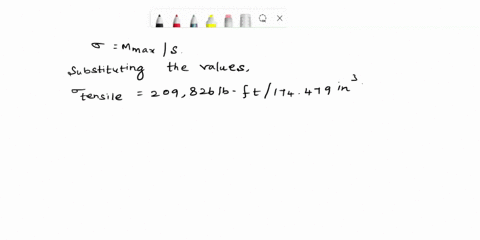 σ = Mmax / S.
Substituting the values,
σtensile = 209,826 lb-ft / 174.479 in³.